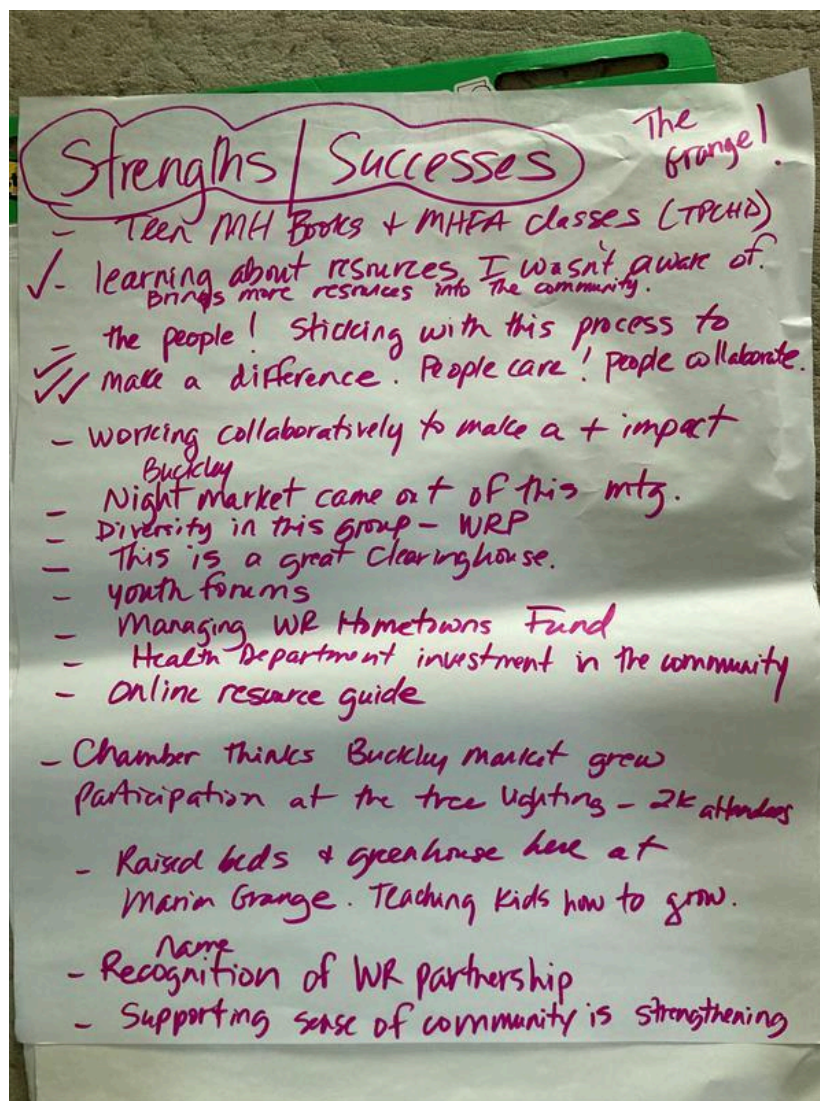 The
Grange!
Strengths / Successes
- Teen MH Books + MHFA classes (TPCHD)
✓- learning about resources I wasn't aware of.
Brings more resources into the community.
- the people! Sticking with this process to
✓✓✓ make a difference. People care! people collaborate.
- working collaboratively to make a + impact
Buckley
- Night market came out of this mtg.
- Diversity in this group - WRP
- This is a great clearinghouse.
- youth forums
- Managing WR Hometowns Fund
- Health Department investment in the community
- Online resource guide
- Chamber thinks Buckley market grew
participation at the tree lighting - 2K attendees
- Raised beds & greenhouse here at
Marion Grange. Teaching kids how to grow.
name
- Recognition of WR partnership
- Supporting sense of community is strengthening